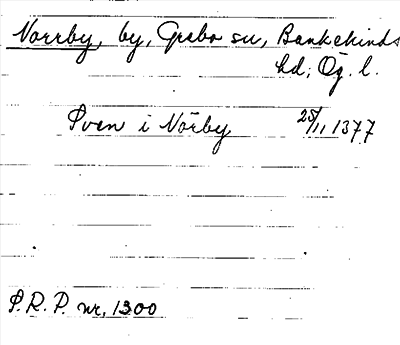 Norrby, by, Grebo sn, Bankekinds
hd, Ög. l.
Sven i Nörby 25/11 1377
S.R.P. nr, 1300